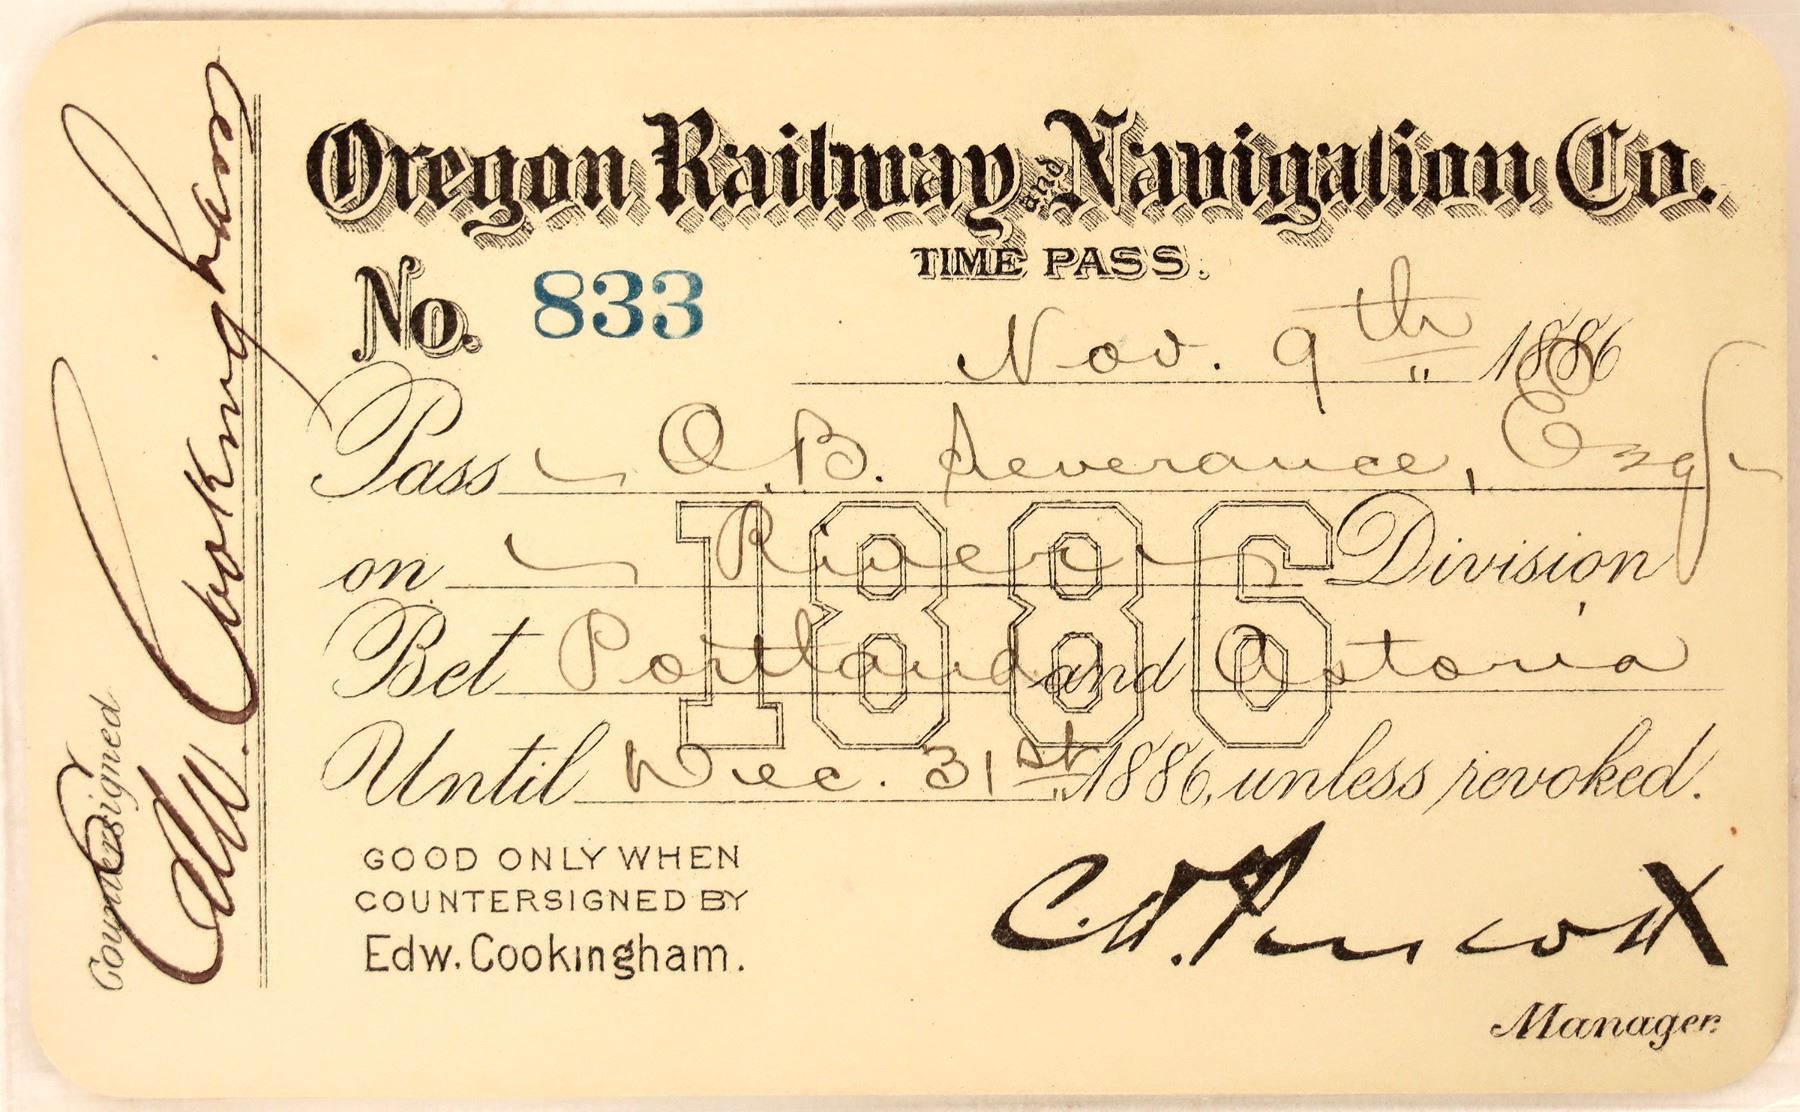 Oregon Railway and Navigation Co.
TIME PASS.
No. 833
Nov. 9th 1886
Pass O.B. Severance, Esq
on River Division
1886
Bet Portland and Astoria
Until Dec. 31st 1886, unless revoked.
GOOD ONLY WHEN
COUNTERSIGNED BY
Edw. Cookingham.
C.H. Prescott
Manager.
Countersigned
Edw. Cookingham